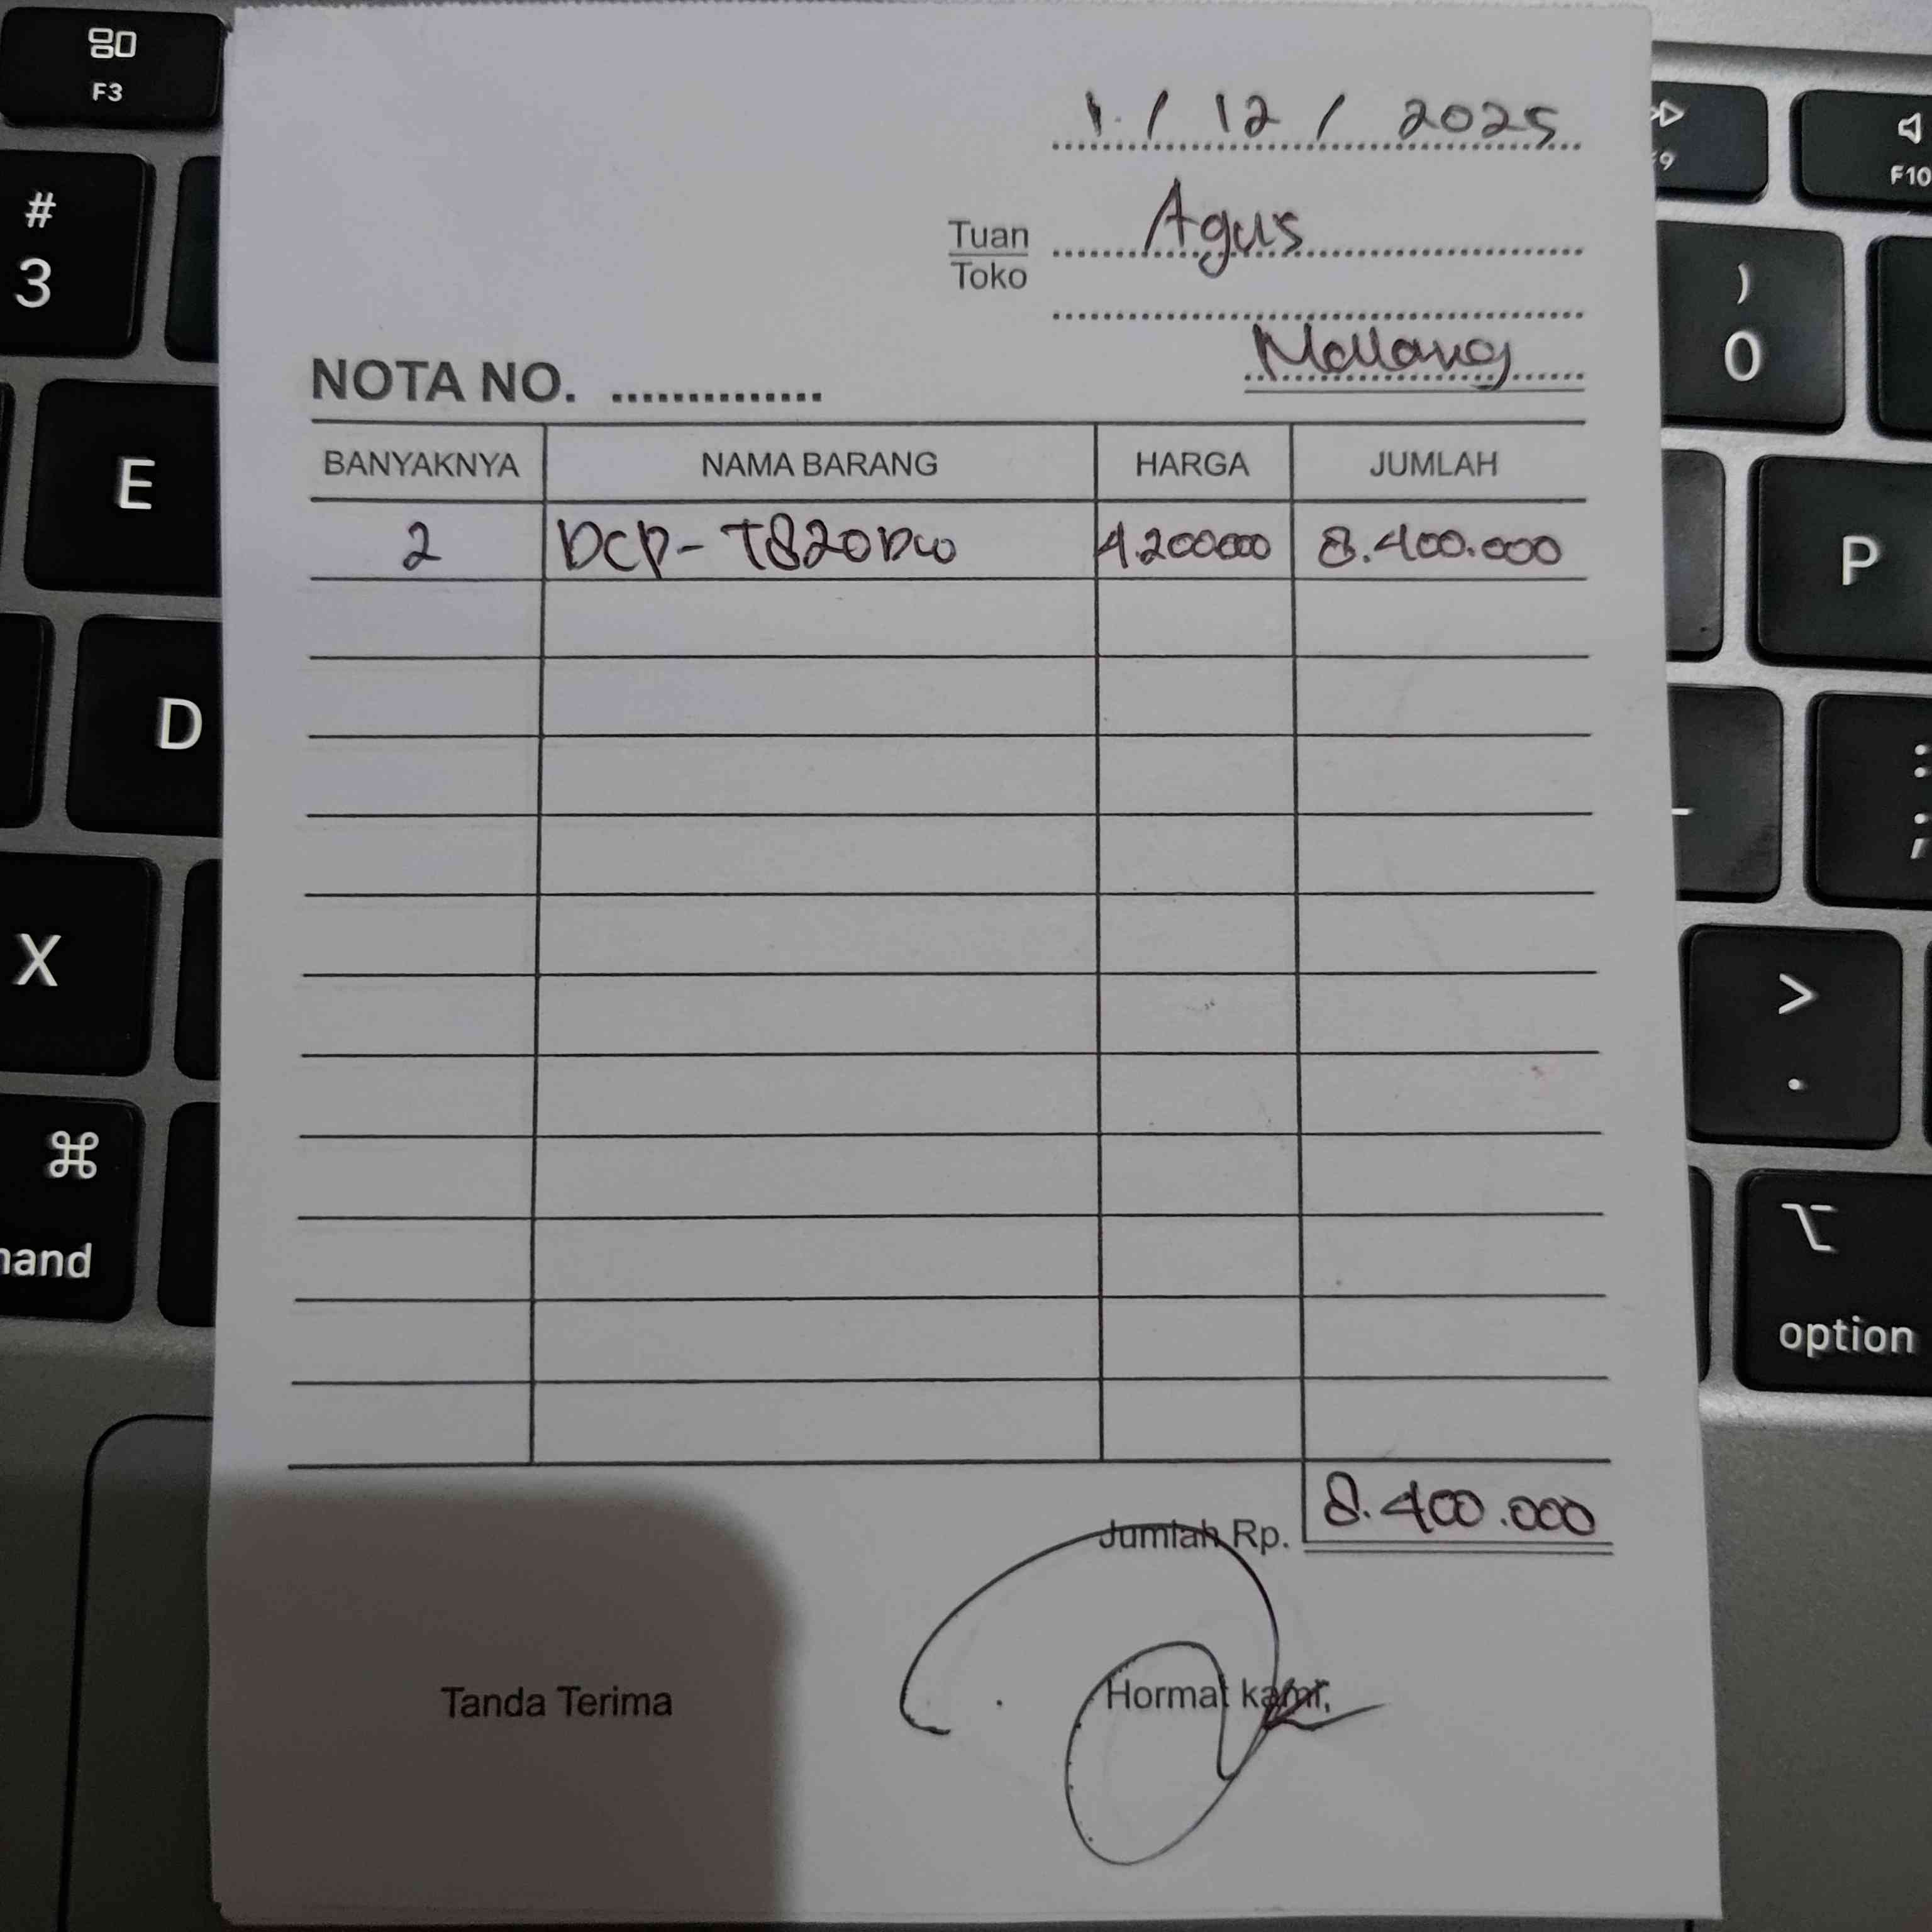 1 / 12 / 2025
Tuan Agus
Toko
Mallang
NOTA NO. ..............
BANYAKNYA NAMA BARANG HARGA JUMLAH
2 DCP-T820DW 4.200000 8.400.000
Jumlah Rp. 8.400.000
Tanda Terima Hormat kami,
F3
# 3
E
D
X
⌘
mand
F9
F10
) 0
P
: ;
> .
⌥
option